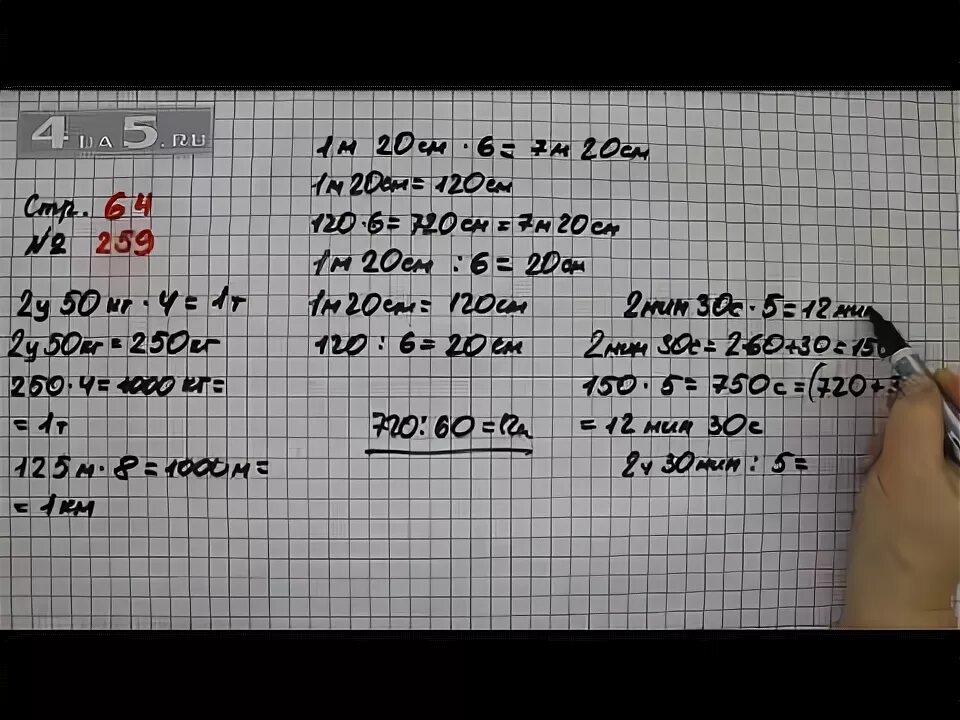 4DA5.RU
Стр. 64
№2 259
2ц 50 кг · 4 = 1т
2ц 50кг = 250кг
250 · 4 = 1000 кг =
= 1т
125 м · 8 = 1000 м =
= 1км
1м 20см · 6 = 7м 20см
1м 20см = 120см
120 · 6 = 720 см = 7м 20см
1м 20см : 6 = 20см
1м 20см = 120см
120 : 6 = 20 см
720 : 60 = 12
2мин 30с · 5 = 12 мин
2мин 30с = 2·60+30 = 150
150 · 5 = 750 с = (720 + 3
= 12 мин 30с
2ч 30мин : 5 =